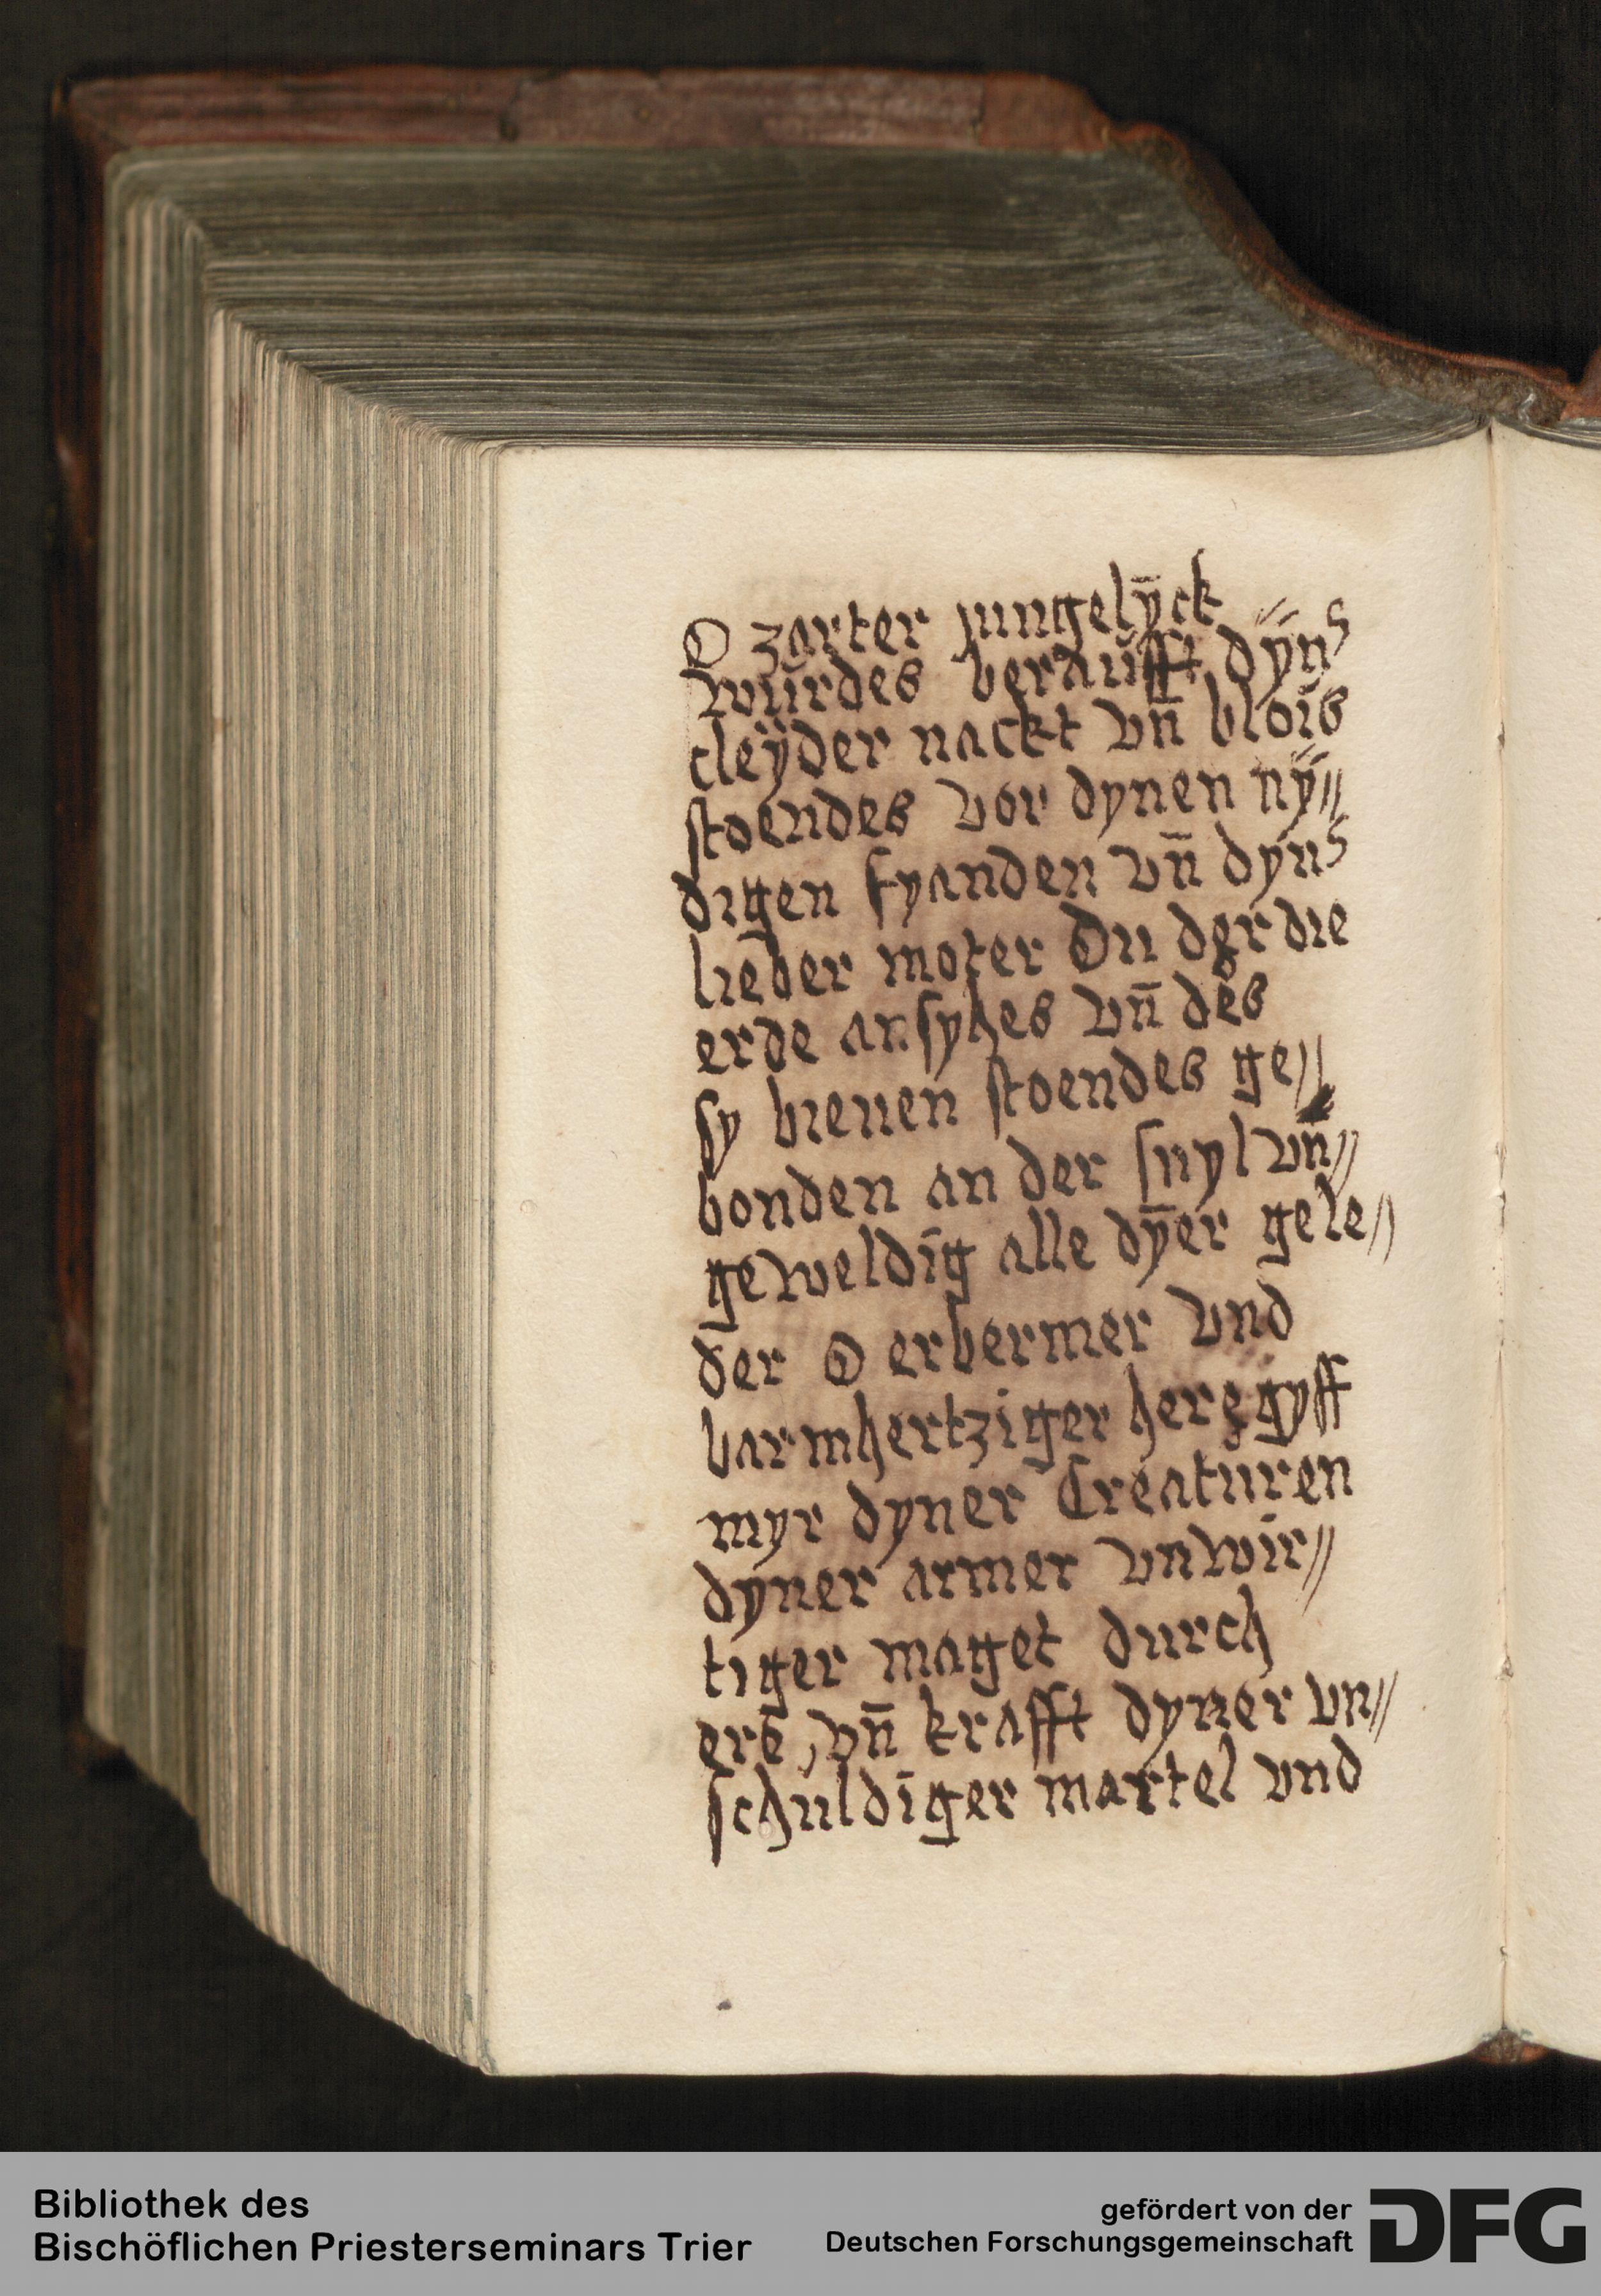 O zarter jungelȳck
wurdes beraufft dÿn᾽
cleÿder nackt vn̄ blois
stoendes vor dynen nÿ//
digen fyanden vn̄ dyn᾽
lieber moter Du der die
erde ansyhes vn̄ des
sy bieuen stoendes ge//
bonden an der suyl vn̄//
geweldig alle dȳer gele//
der O erbermer vnd
barmhertziger here gyff
myr dyner Creaturen
dyner armer vnwir//
tiger maget durch
ere, vn̄ krafft dyner vn//
schuldiger martel vnd
Bibliothek des
Bischöflichen Priesterseminars Trier
gefördert von der
Deutschen Forschungsgemeinschaft
DFG